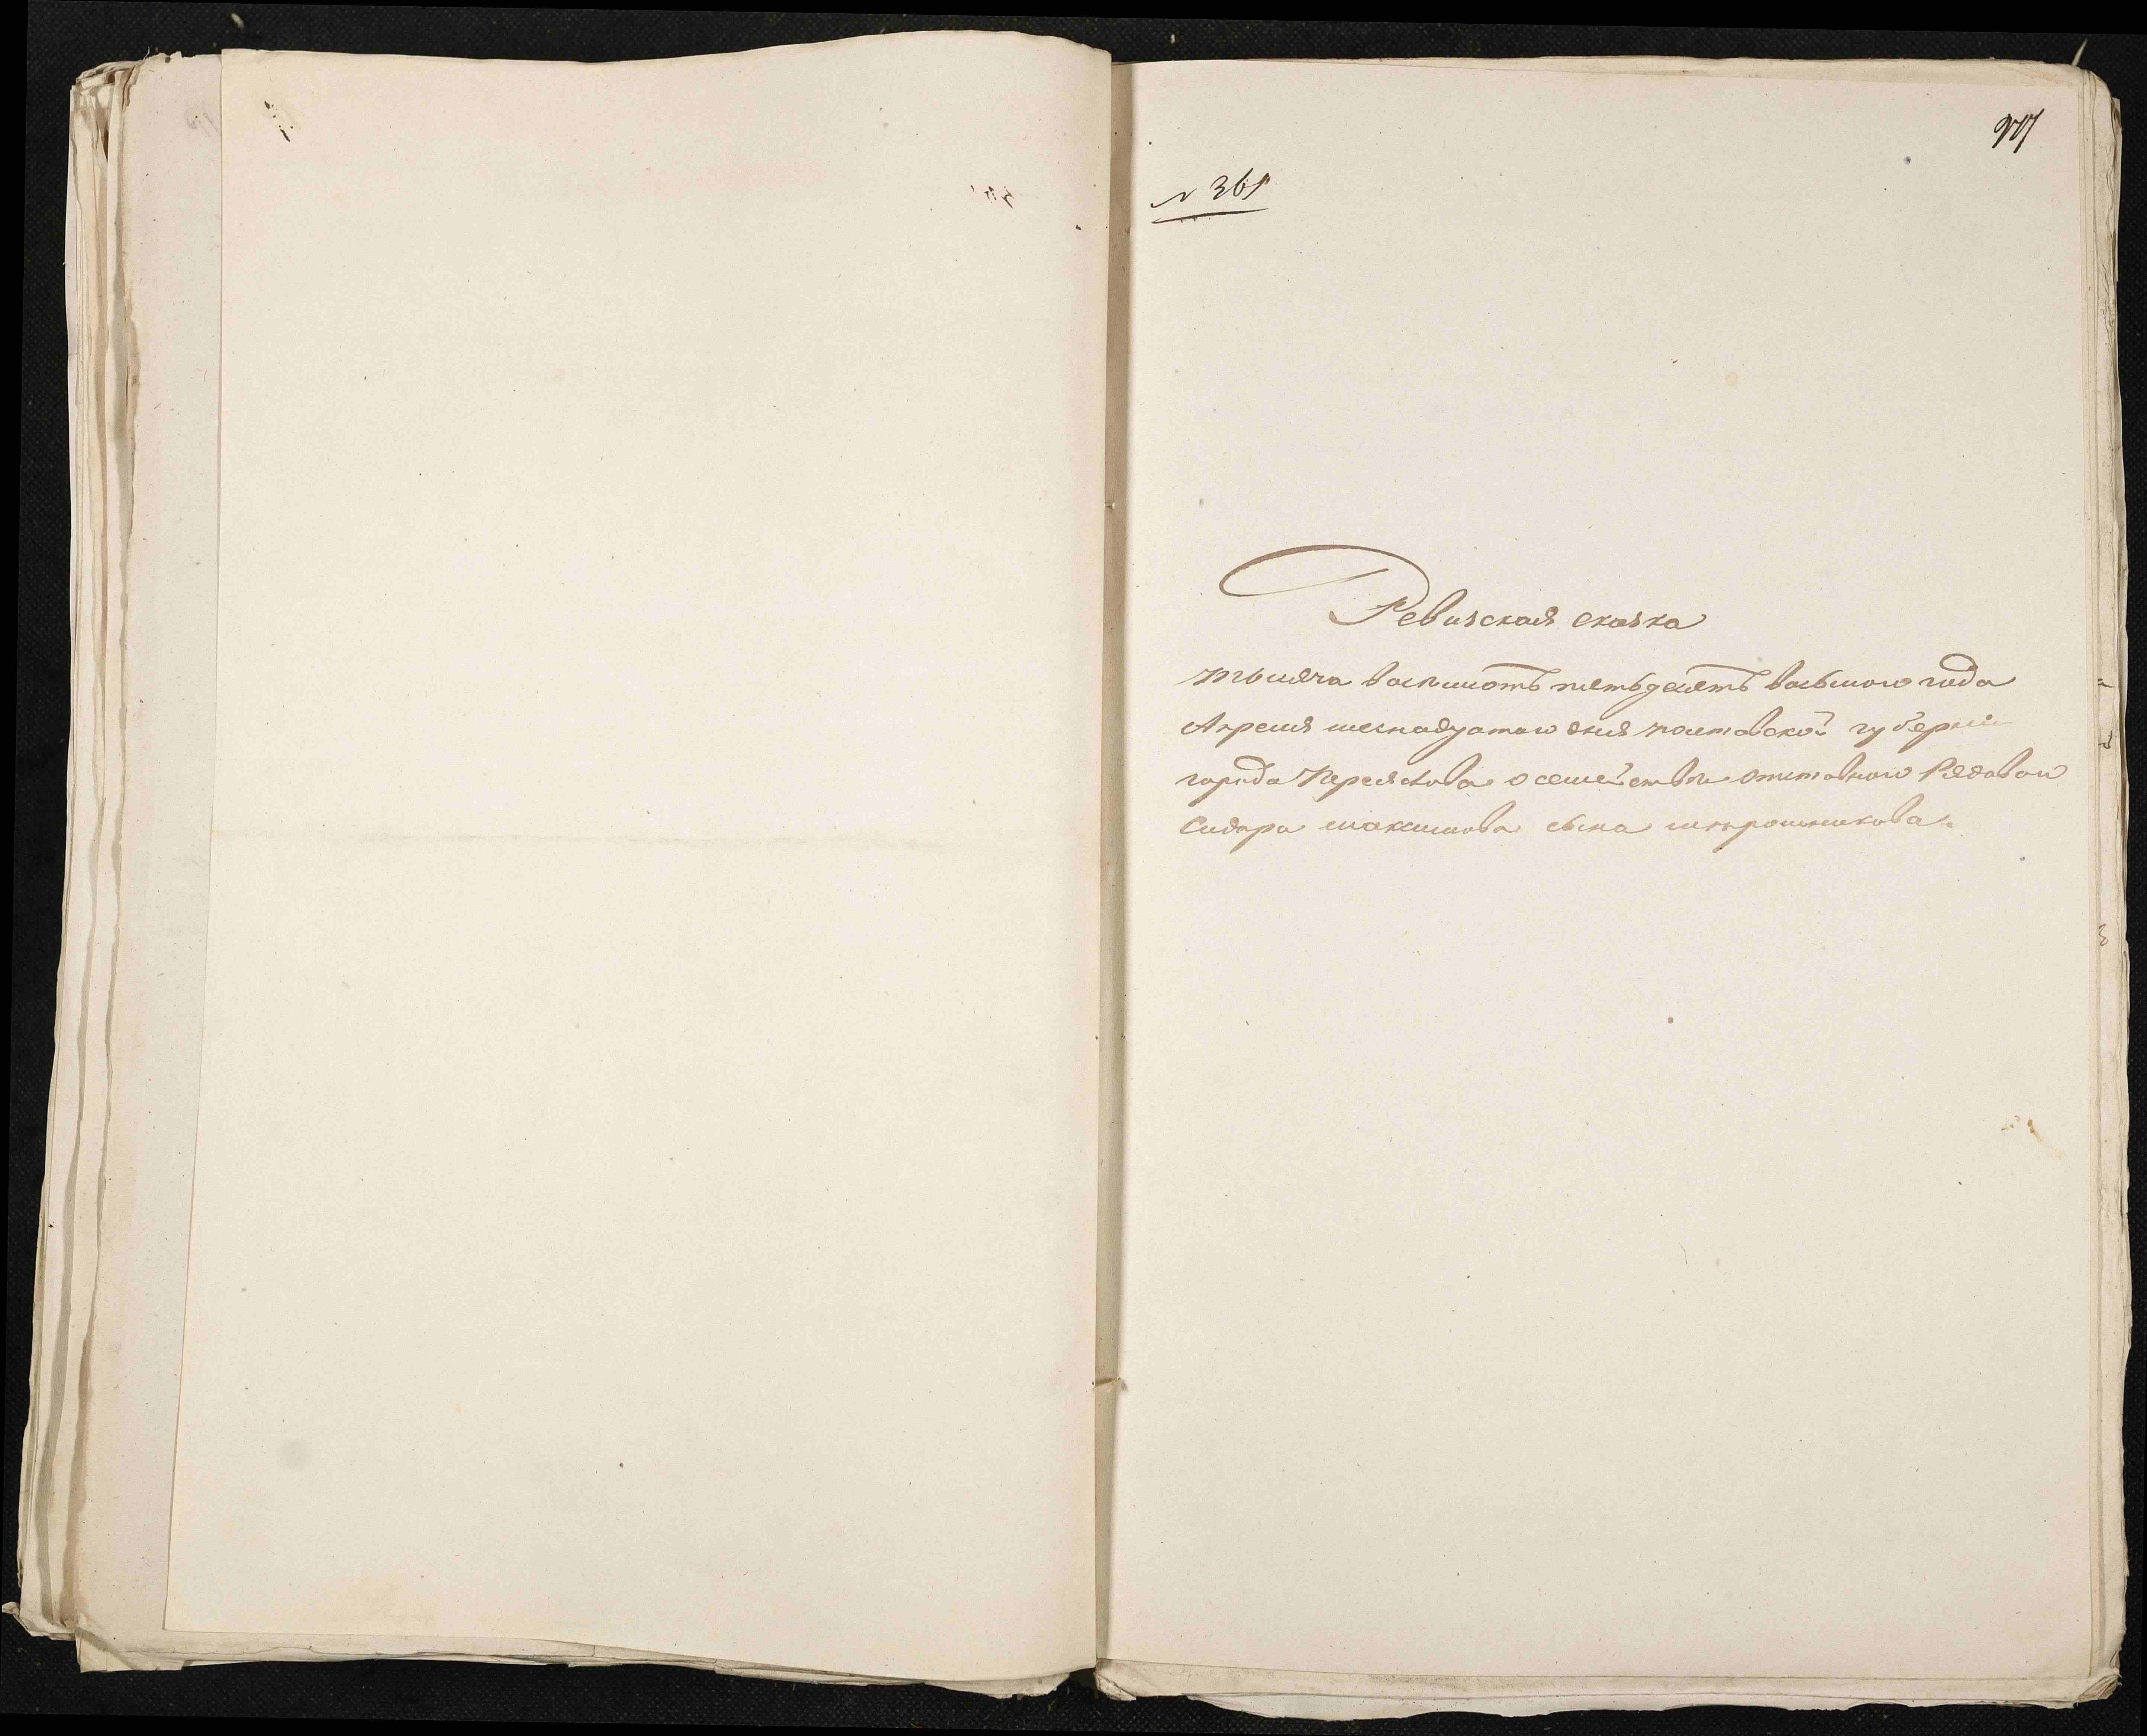 № 361
Ревизская сказка
тысяча восемьсотъ пятьдесятъ восьмого года
Апреля шеснадцатого дня полтавской губернии
города Переяслова о семействе отставного Рядового
Сидора максимова сына мирошникова.